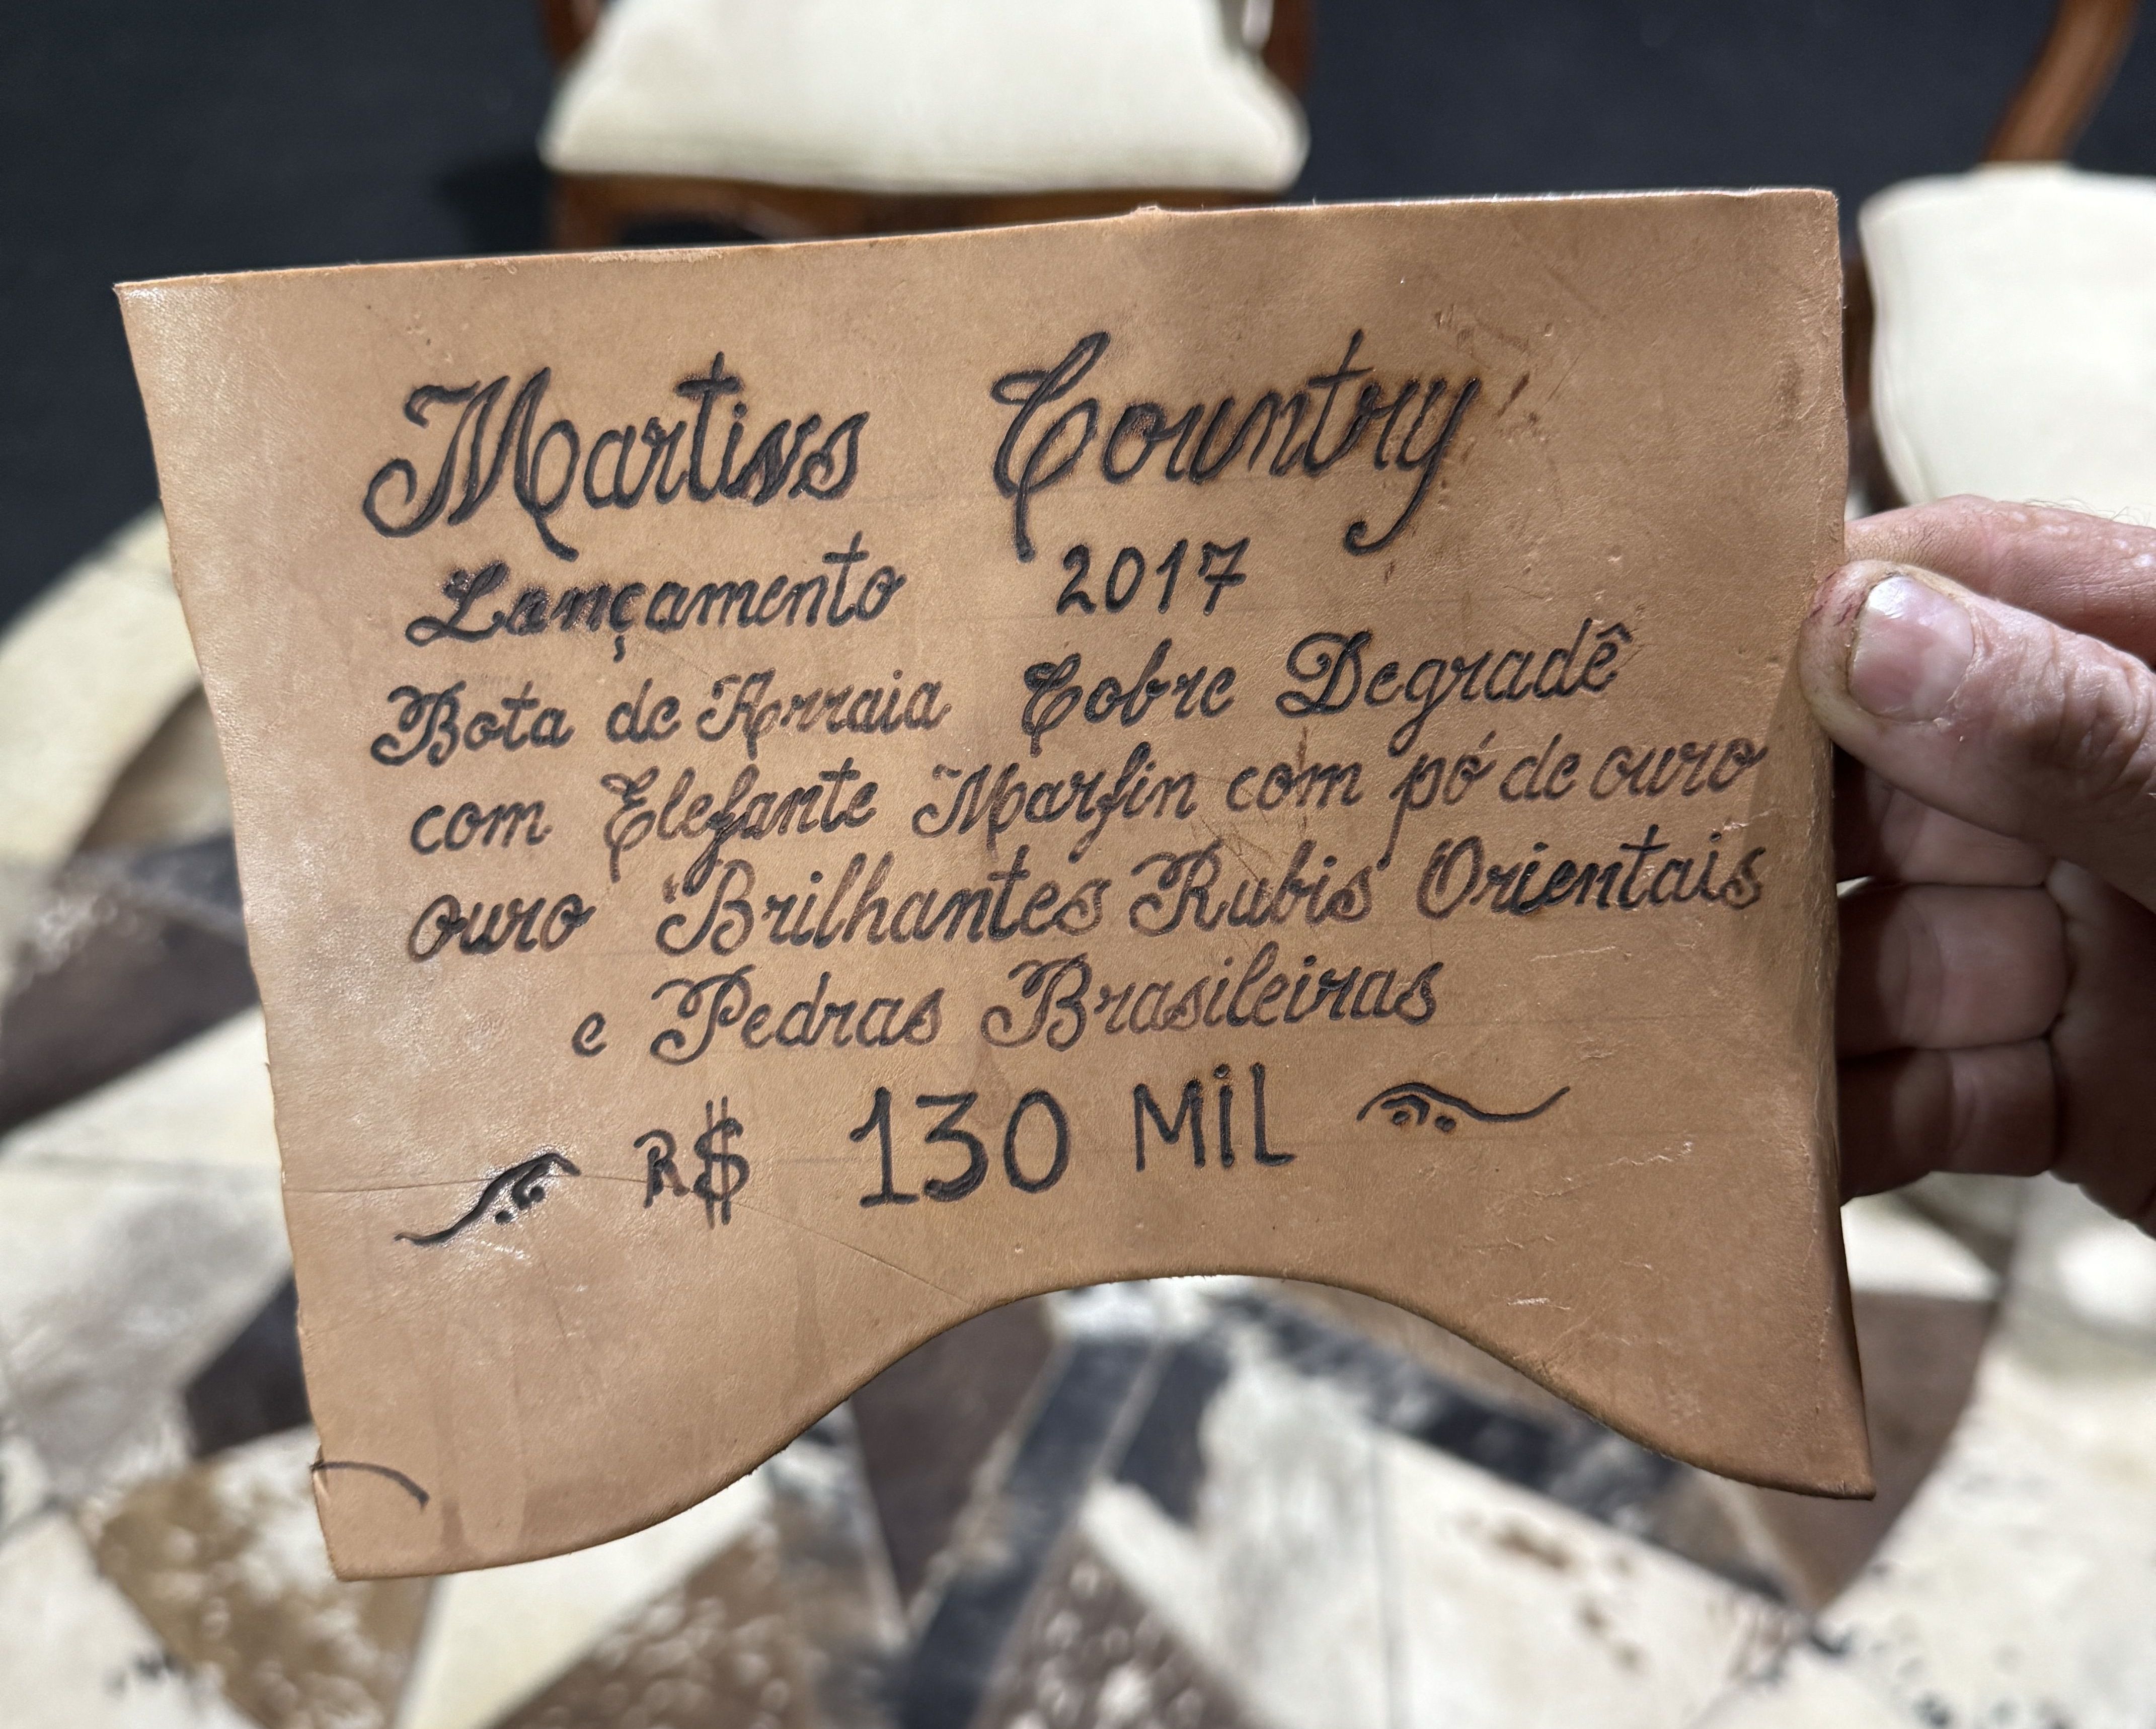 Martins Country
Lançamento 2017
Bota de Arraia Cobre Degradê
com Elefante Marfin com pó de ouro
ouro Brilhantes Rubis Orientais
e Pedras Brasileiras
R$ 130 MiL